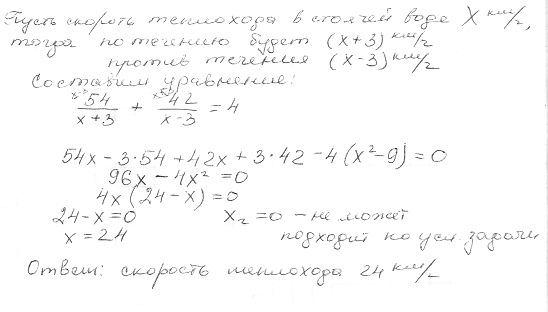 Пусть скорость теплохода в стоячей воде x км/ч,
тогда по течению будет (x+3) км/ч
против течения (x-3) км/ч
Составим уравнение:
54/(x+3) + 42/(x-3) = 4
54x - 3·54 + 42x + 3·42 - 4(x²-9) = 0
96x - 4x² = 0
4x(24-x) = 0
24-x=0 x₂=0 - не может
x = 24 подходит по усл. задачи
Ответ: скорость теплохода 24 км/ч